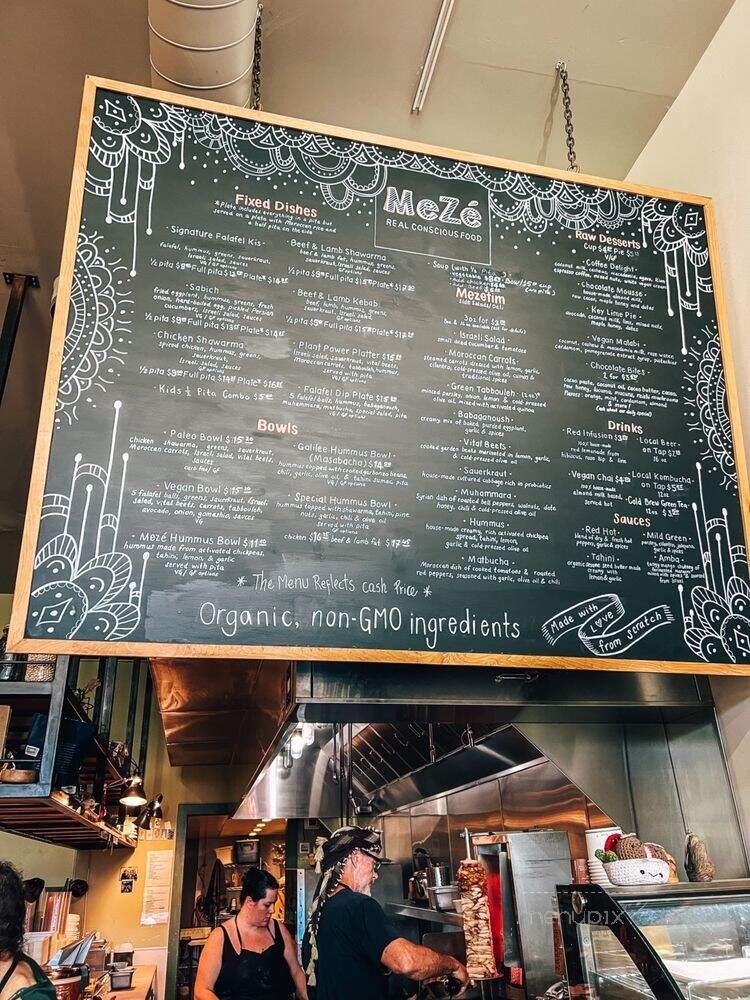 MeZé
REAL CONSCIOUS FOOD
Fixed Dishes
a plate includes everything in a pita but
served on a plate with Moroccan rice and
a half pita on the side
· Signature Falafel Kis ·
falafel, hummus, greens, sauerkraut,
Israeli salad, sauces
½ pita $ Full pita $ Plate $14
· Sabich ·
fried eggplant, hummus, greens, fresh
onion, hard-boiled egg, pickled Persian
cucumbers, Israeli salad, sauces
½ pita $ Full pita $13 Plate $14
· Chicken Shawarma
spiced chicken, hummus, greens,
sauerkraut,
Israeli salad, sauces
½ pita $ Full pita $14 Plate $16
· Kids ½ Pita Combo $5
· Beef & Lamb Shawarma
beef & lamb fat, hummus, greens,
sauerkraut, Israeli salad, sauces
½ pita $ Full pita $15 Plate $17
· Beef & Lamb Kebab
beef, lamb, hummus, greens,
sauerkraut, Israeli salad,
sauces
½ pita $ Full pita $15 Plate $17
· Plant Power Platter $15
Israeli salad, sauerkraut, vital beets,
Moroccan carrots, tabbouleh, hummus
served with pita
VG/GF options
· Falafel Dip Plate $15
5 falafel balls, hummus, babaganoush,
muhammara, matbucha, special sauce, pita
Bowls
· Paleo Bowl $15
chicken shawarma, greens, sauerkraut,
Moroccan carrots, Israeli salad, vital beets,
sauces
· Vegan Bowl $15
5 falafel balls, greens, sauerkraut, Israeli
salad, vital beets, carrots, tabbouleh,
avocado, onion, gomashio, sauces
VG
· Mezé Hummus Bowl $11
hummus made from activated chickpeas,
tahini, lemon & garlic
served with pita
VG/GF options
· Galilee Hummus Bowl ·
(Masabacha) $14
hummus topped with cooked garbanzo beans,
chili, garlic, olive oil & tahini, cumin, pita
VG/GF options
· Special Hummus Bowl ·
hummus topped with shawarma, tahini, pine
nuts, garlic, chili & olive oil
served with pita
GF options
chicken $16 beef & lamb fat $17
· Soup (with ½ Pita)
Mezetim
3oz for $3
· Israeli Salad ·
small diced cucumber & tomatoes
· Moroccan Carrots ·
steamed carrots dressed with lemon, garlic,
cilantro, cold-pressed olive oil, cumin &
traditional spices
· Green Tabbouleh ·
minced parsley, onion, lemon & cold-pressed
olive oil, mixed with activated quinoa
· Babaganoush ·
creamy mix of baked, pureed eggplant,
garlic & spices
· Vital Beets ·
cooked garden beets marinated in lemon, garlic,
& cold-pressed olive oil
· Sauerkraut ·
house-made cultured cabbage rich in probiotics
· Muhammara ·
Syrian dish of roasted bell peppers, walnuts, date
honey, chili & cold-pressed olive oil
· Hummus ·
house-made creamy, rich activated chickpea
spread, tahini, lemon,
garlic & cold-pressed olive oil
· Matbucha ·
Moroccan dish of cooked tomatoes & roasted
red peppers, seasoned with garlic, olive oil & chili
Raw Desserts
Cup $4 Pie $5
· Coffee Delight ·
· Chocolate Mousse ·
house-made almond milk,
raw cacao, maple honey and dates
· Key Lime Pie ·
coconut, almond milk, lime, mixed nuts,
maple honey, dates
· Vegan Malabi ·
coconut, cashew & macadamia milk, rose water,
cardamom, pomegranate extract syrup, pistachio
· Chocolate Bites ·
2 for $3
Drinks
· Red Infusion $3
100% house made
red lemonade from
hibiscus, rose hip & lime
· Local Beer ·
on Tap $7
16 oz
· Vegan Chai $4
100% home made
almond milk based,
served hot
· Local Kombucha ·
on Tap $5
12oz
· Cold Brew Green Tea ·
12oz $3
Sauces
· Red Hot ·
blend of dry & fresh hot
peppers, garlic & spices
· Mild Green ·
parsley, cilantro, jalapeno,
garlic & spices
· Tahini ·
organic sesame seed butter made
creamy with
lemon & garlic
· Amba ·
* The Menu Reflects cash Price *
Organic, non-GMO ingredients
Made with
LOVE
from scratch
menupix